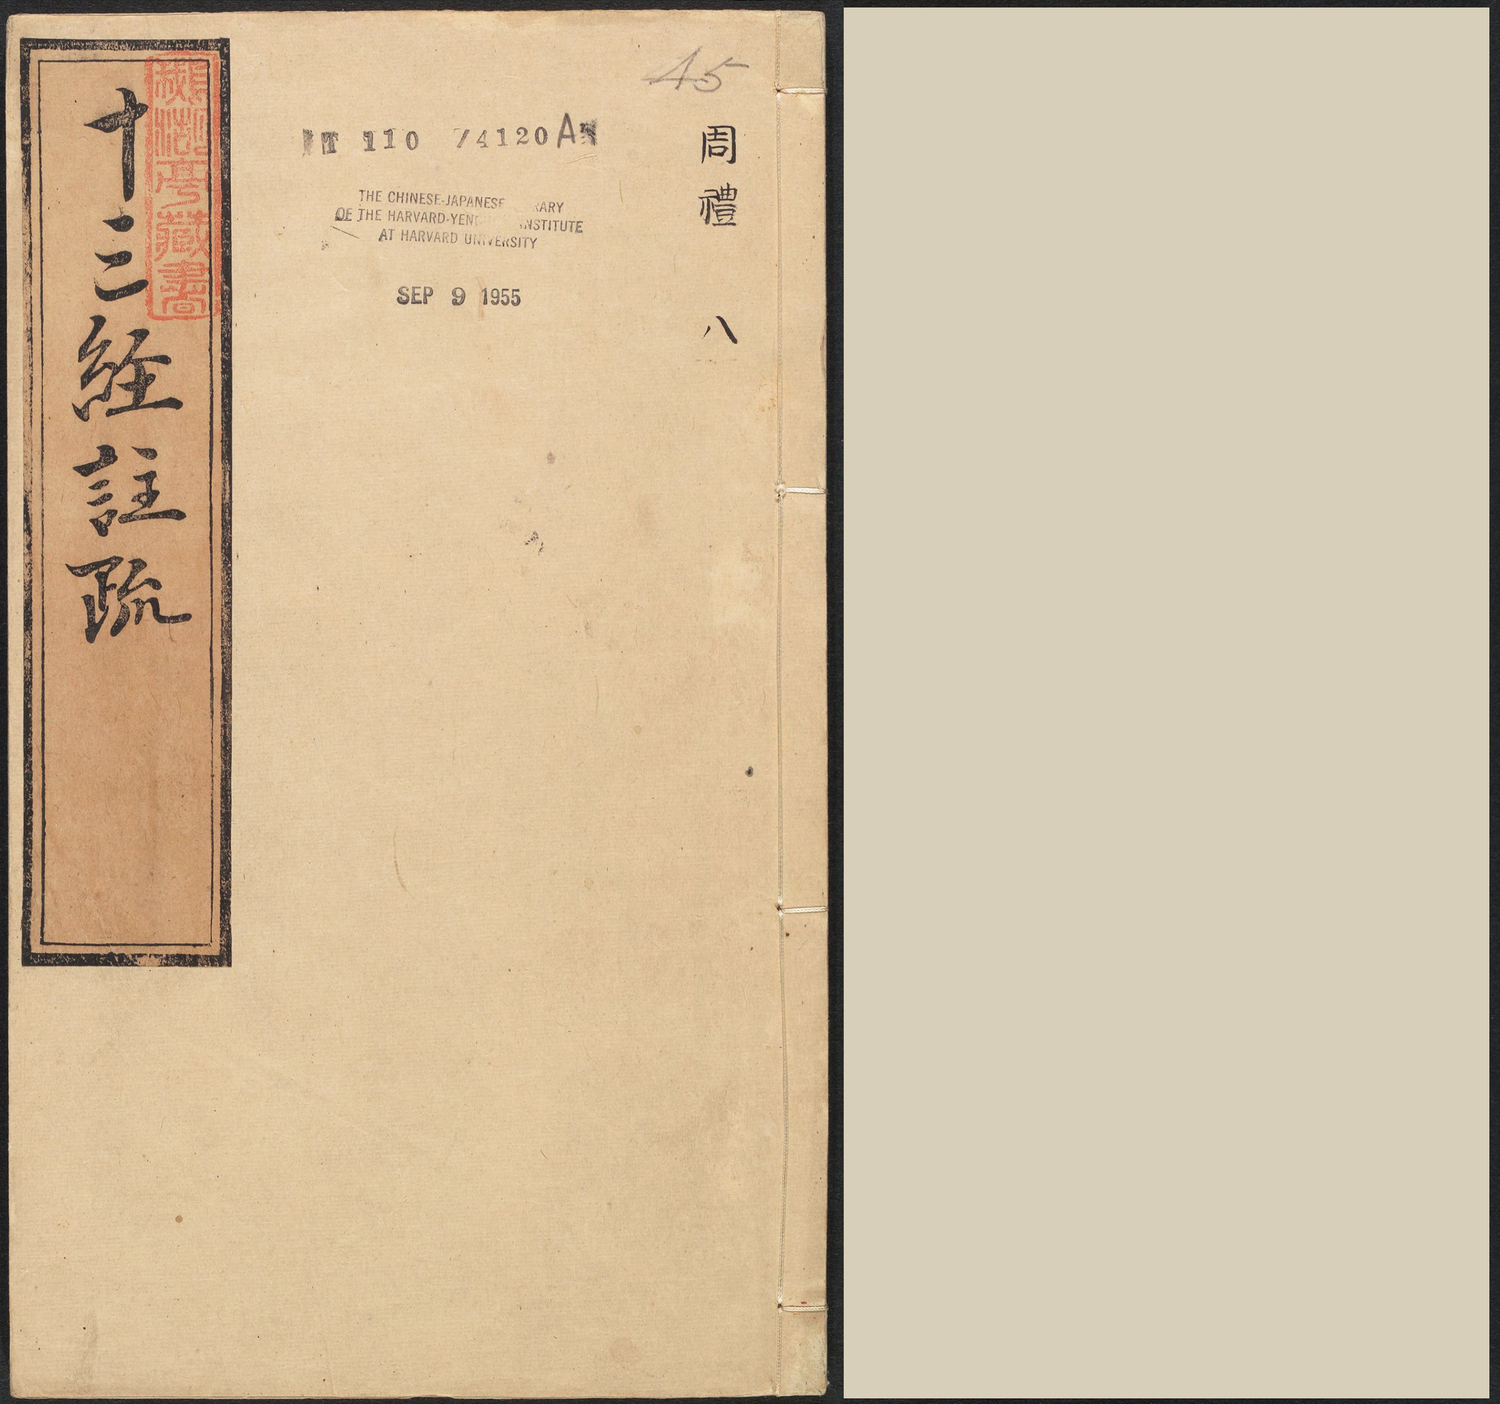 45
周禮 八
T 110 74120 A
THE CHINESE-JAPANESE
OF THE HARVARD-YEN INSTITUTE
AT HARVARD UNIVERSITY
SEP 9 1955
十三經註疏
亭藏書